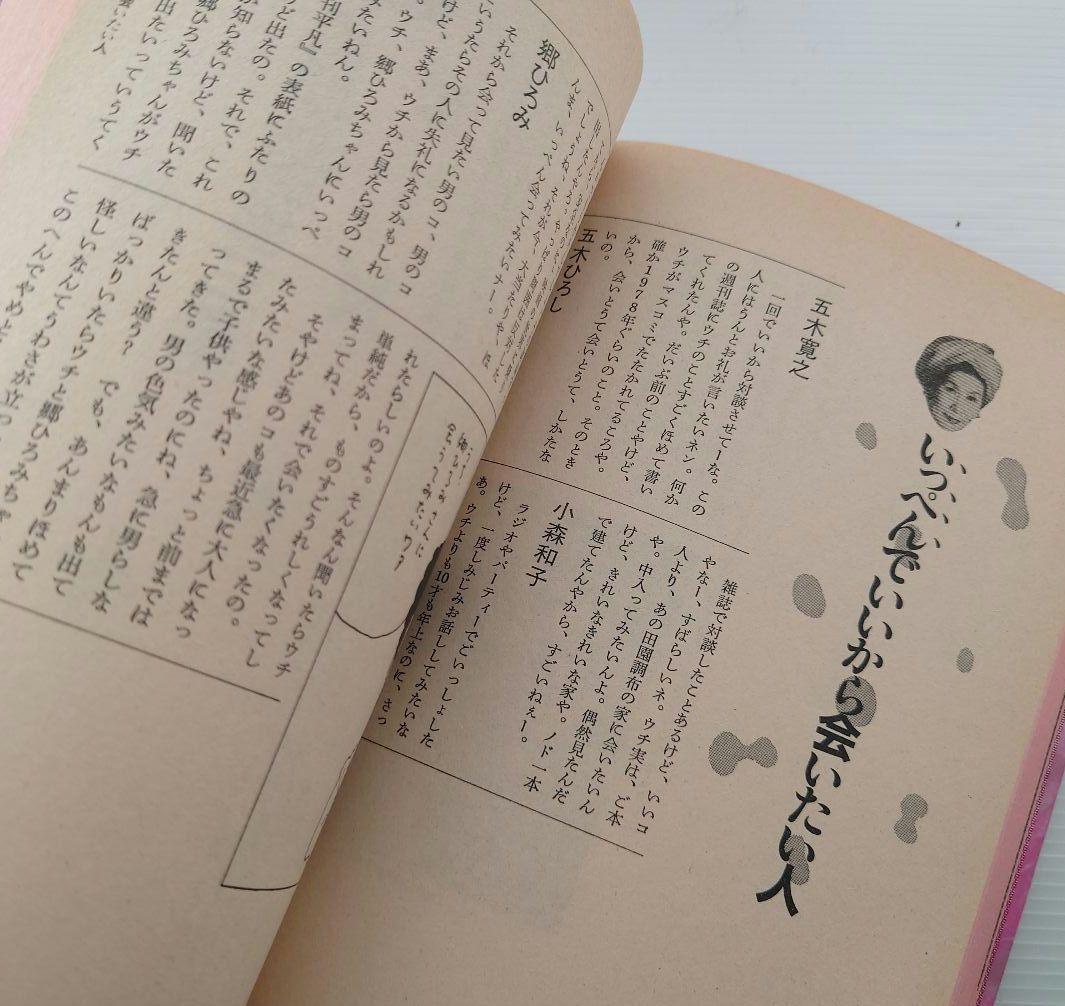 いっぺんでいいから会いたい人
五木寛之
一回でいいから対談させてーな。この
人にはうんとお礼が言いたいネン。何か
の週刊誌にウチのことすごくほめて書い
てくれたんや。だいぶ前のことやけど、
ウチがマスコミでたたかれてるころや。
確か1978年ぐらいのこと。そのとき
から、会いとうて会いとうて、しかたな
いの。
五木ひろし
雑誌で対談したことあるけど、いいコ
やなー、すばらしいネ。ウチ実は、ご本
人より、あの田園調布の家に会いたいん
や。中入ってみたいんよ。偶然見たんだ
けど、きれいなきれいな家や。ノド一本
で建てたんやから、すごいねぇー。
小森和子
ラジオやパーティーでごいっしょした
けど、一度しみじみお話ししてみたいな
あ。ウチよりも10才も年上なのに、さっ
んま、いっぺん会ってみたいナー。
郷ひろみ
それから会って見たい男のコ、男のコ
いうたらその人に失礼になるかもしれ
けど、まあ、ウチから見たら男のコ
ウチ、郷ひろみちゃんにいっぺ
たいねん。
刊平凡』の表紙にふたりの
ど出たの。それで、これ
が知らないけど、聞いた
郷ひろみちゃんがウチ
出たいっていうてく
会いたい人
れたらしいのよ。そんなん聞いたらウチ
単純だから、ものすごうれしくなってし
まってね、それで会いたくなったの。
そやけどあのコも最近急に大人になっ
たみたいな感じやね、ちょっと前までは
まるで子供やったのにね、急に男らしな
ってきた。男の色気みたいなもんも出て
きたんと違う? でも、あんまりほめて
ばっかりいたらウチと郷ひろみちゃ
怪しいなんてうわさが立っ
このへんでやめと
郷ひろみさんに
会うてみたいワ?